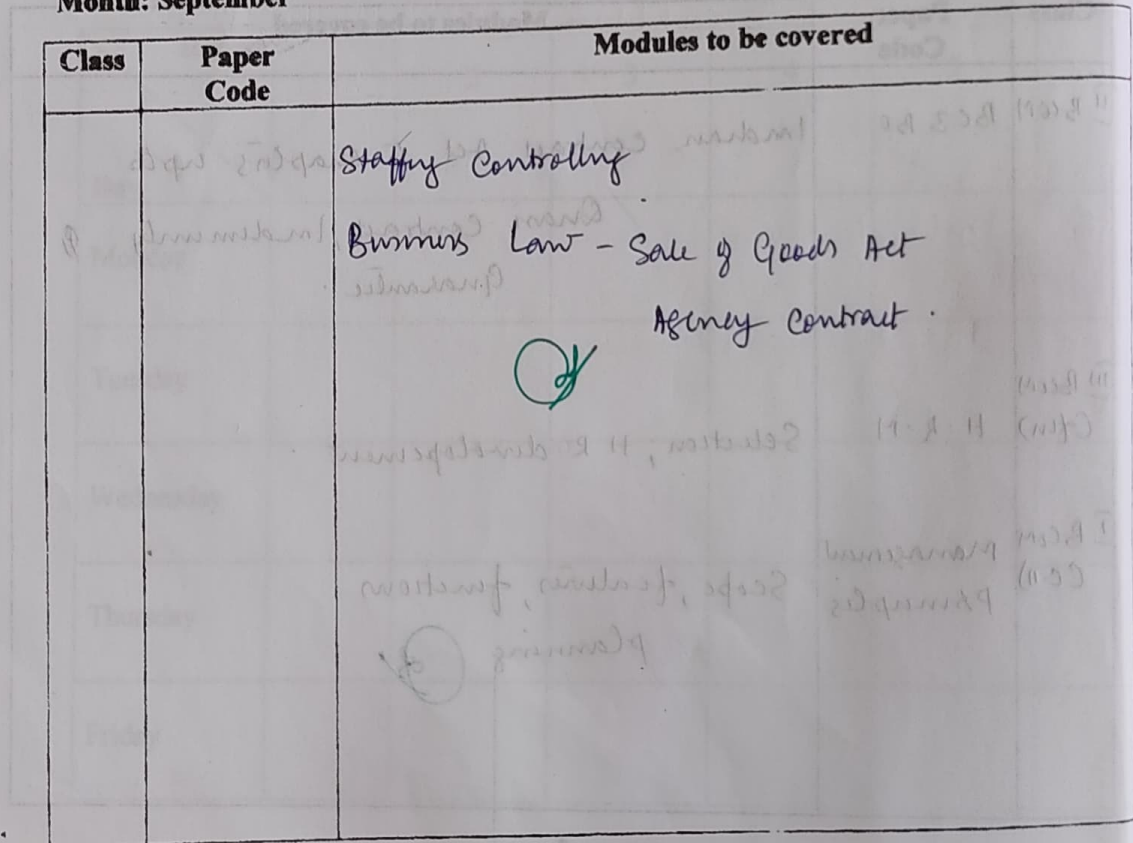 Month: September
Class Paper Code Modules to be covered
Staffing Controlling
Business Law - Sale of Goods Act
Agency Contract.